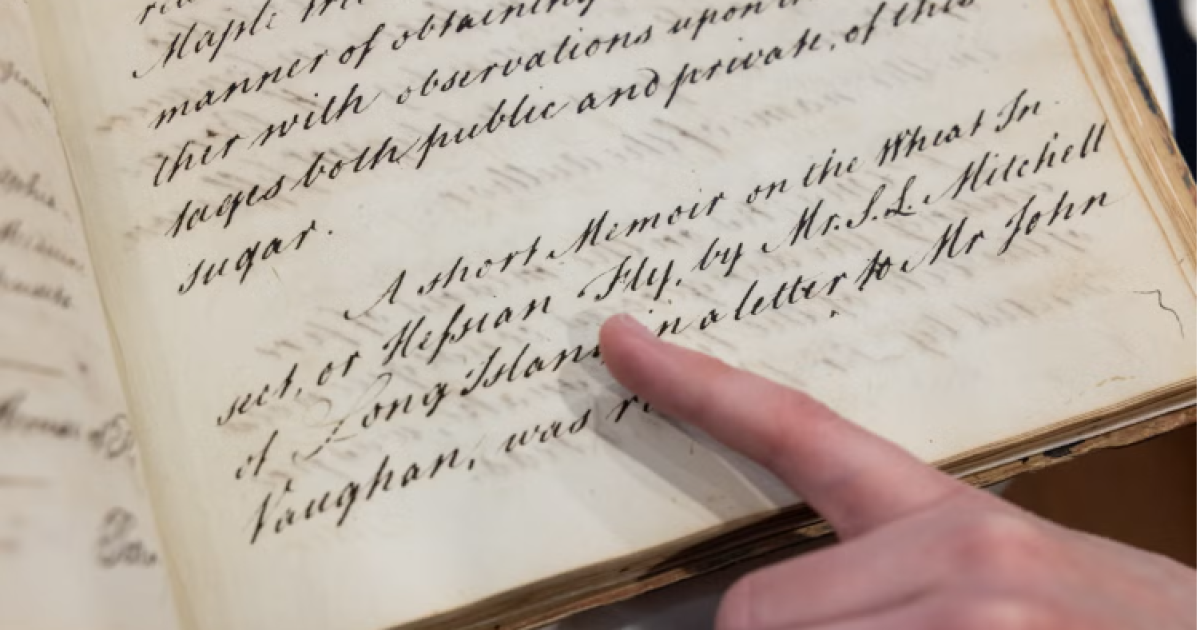 Maple
manner of obtaining
ther with observations upon
tages both public and private, of this
sugar.
A short Memoir on the Wheat In
sect, or Heſsian Fly, by Mr. S. L. Mitchell
of Long Island, in a letter to Mr John
Vaughan, was